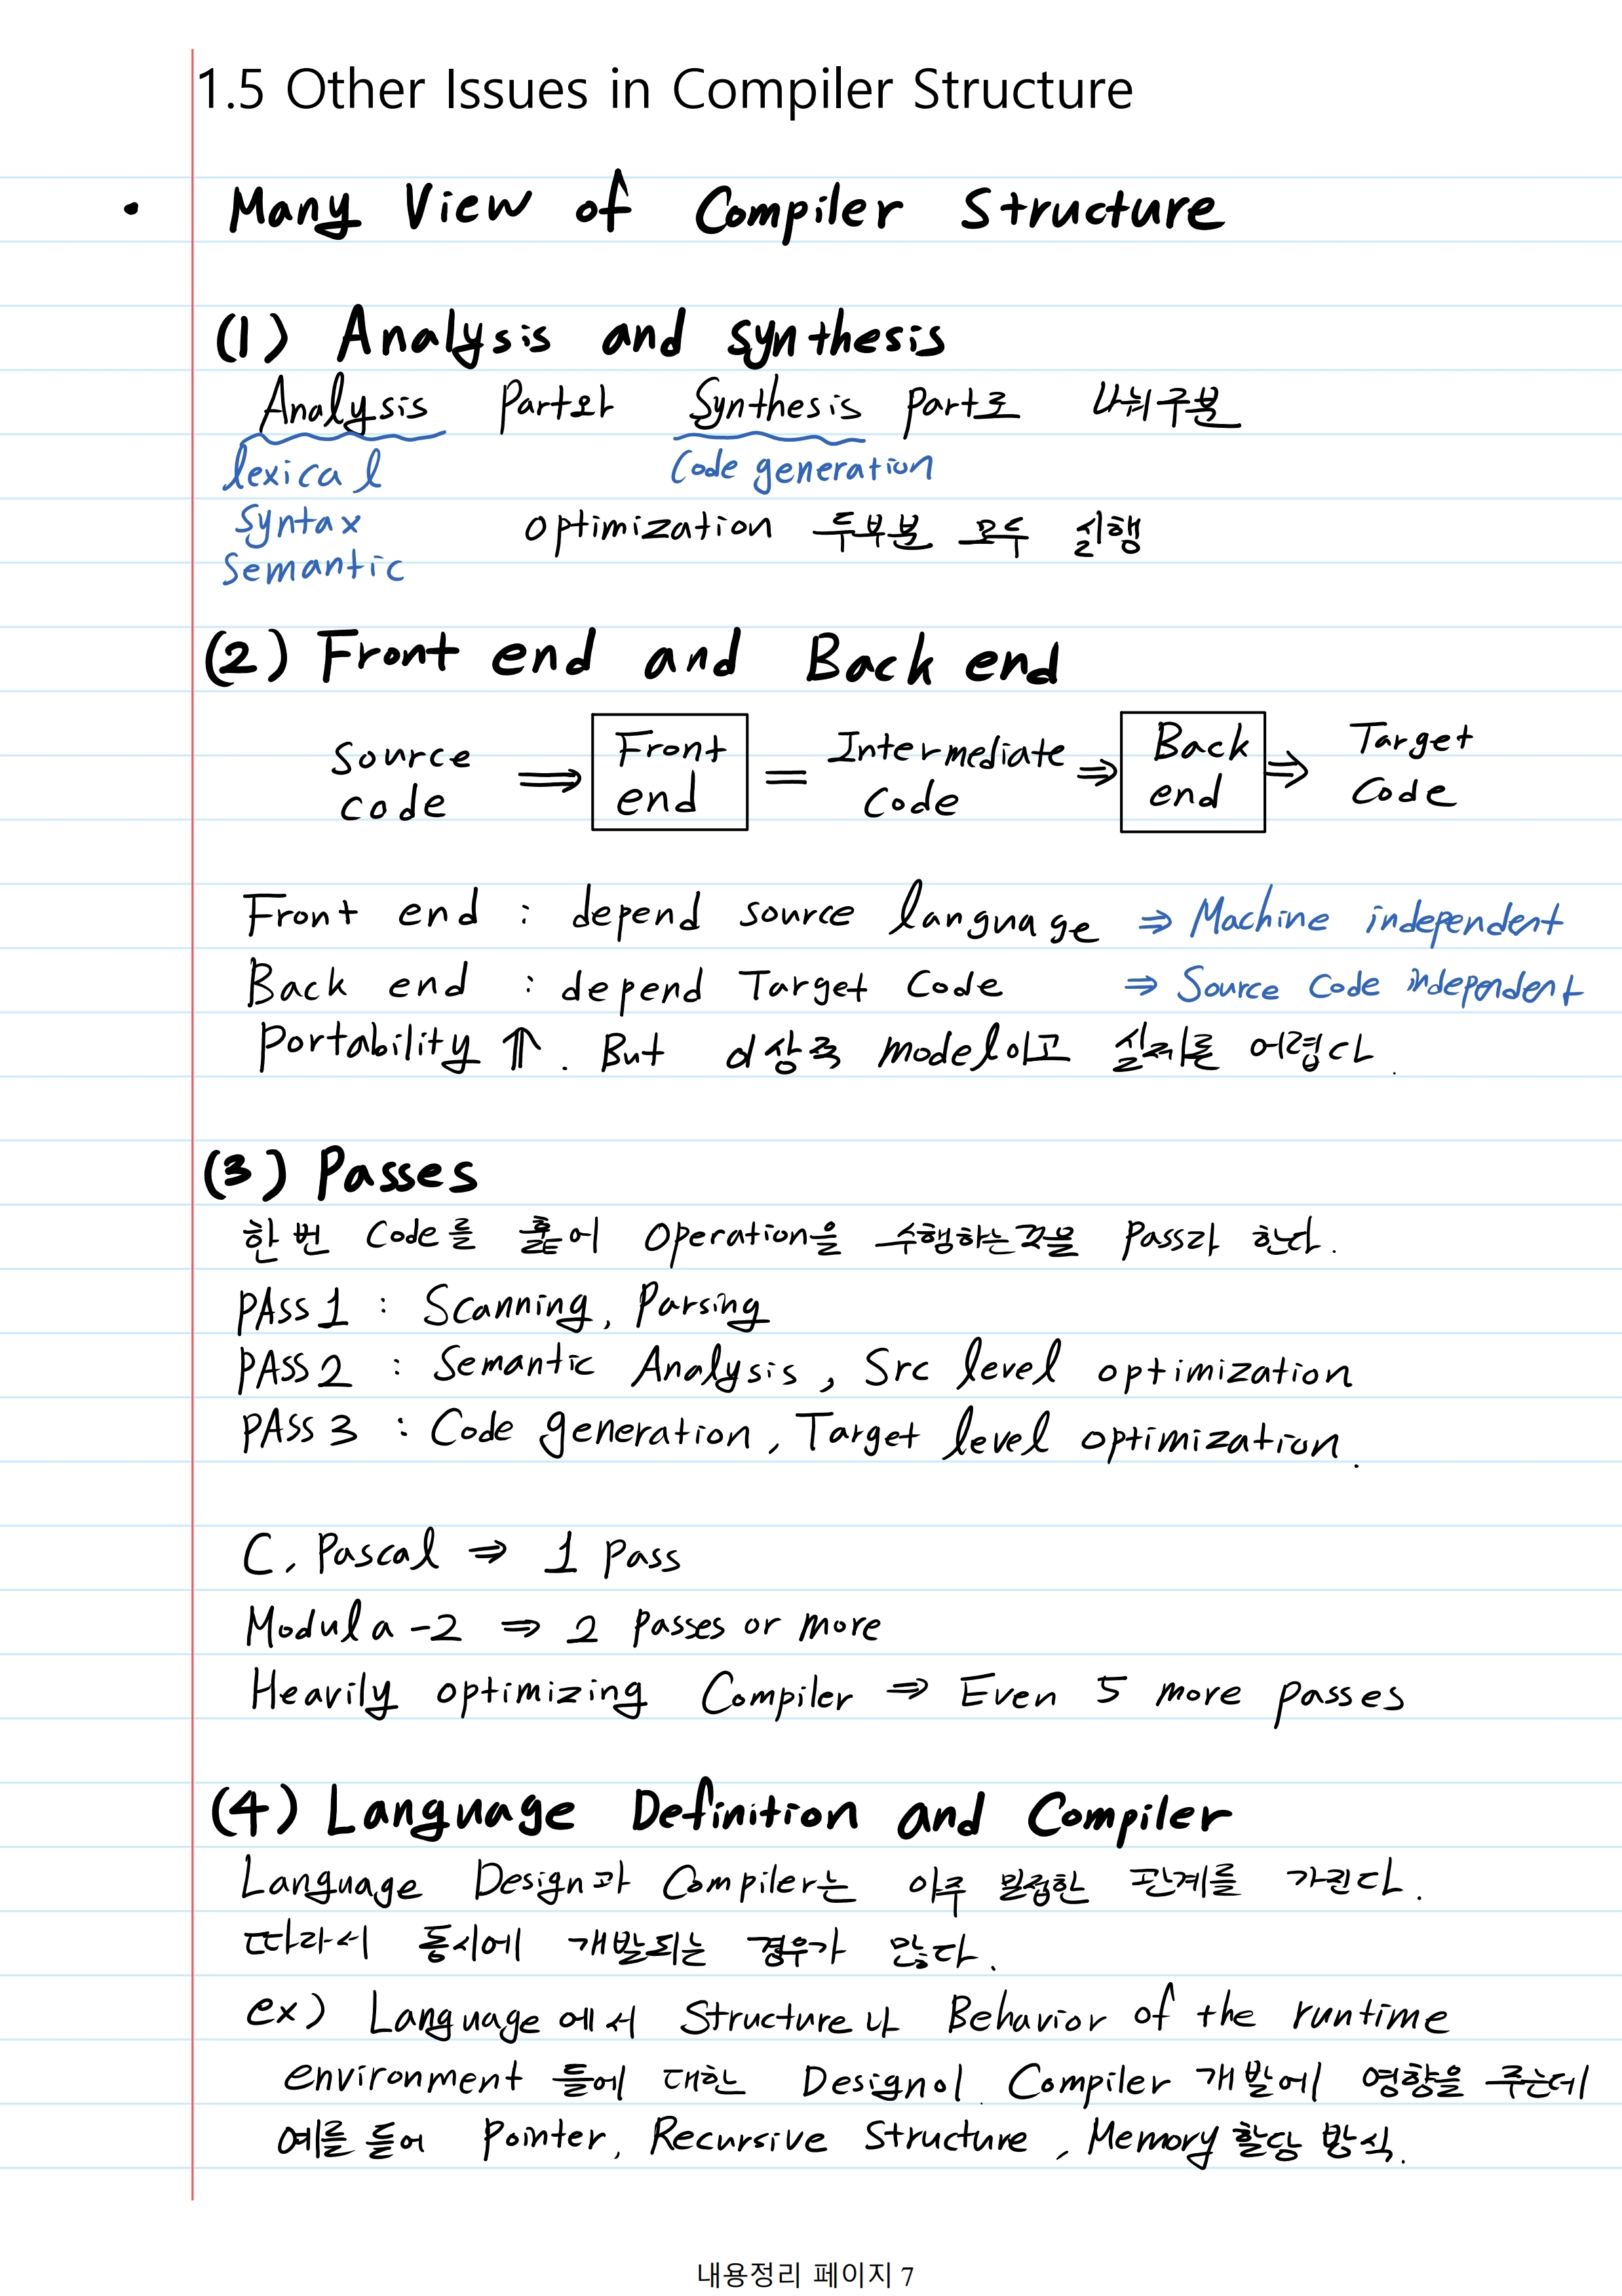 1.5 Other Issues in Compiler Structure
• Many View of Compiler Structure
(1) Analysis and synthesis
Analysis Part와 Synthesis Part로 나눠구분
lexical
Code generation
Syntax
optimization 두부분 모두 실행
Semantic
(2) Front end and Back end
Source code ⇒ Front end = Intermediate Code ⇒ Back end ⇒ Target Code
Front end : depend source language ⇒ Machine independent
Back end : depend Target Code ⇒ Source Code independent
Portability ⇑. But 이상적 model이고 실제론 어렵다.
(3) Passes
한번 Code를 훑어 Operation을 수행하는것을 Pass라 한다.
PAss 1 : Scanning, Parsing
PAss 2 : Semantic Analysis, Src level optimization
PAss 3 : Code generation, Target level optimization.
C, Pascal ⇒ 1 Pass
Modula-2 ⇒ 2 Passes or more
Heavily optimizing Compiler ⇒ Even 5 more passes
(4) Language Definition and Compiler
Language Design과 Compiler는 아주 밀접한 관계를 가진다.
따라서 동시에 개발되는 경우가 많다.
ex) Language에서 Structure나 Behavior of the runtime
environment 들에 대한 Design이 Compiler 개발에 영향을 주는데
예를 들어 Pointer, Recursive Structure, Memory 할당 방식.
내용정리 페이지 7